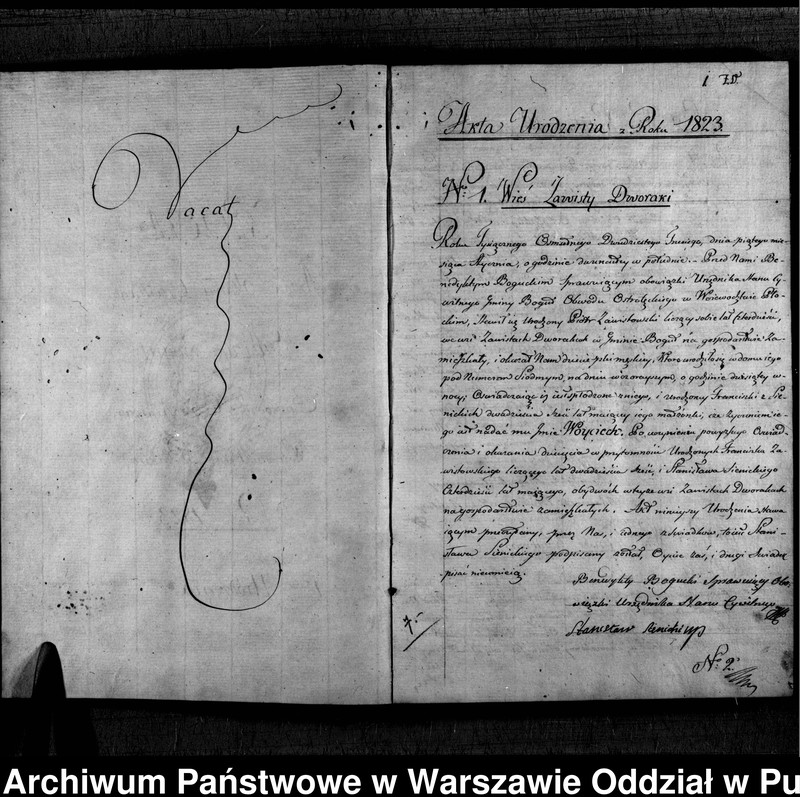 Vacat
1
Akta Urodzenia z Roku 1823.
No. 1. Wieś Zawisty Dworaki
Roku Tysiącznego Osmsetnego Dwudziestego Trzeciego, dnia piątego mie-
siąca Stycznia, o godzinie dwunastey w południe. Przed Nami Be-
nedyktym Boguckim sprawuiącym obowiązki Urzędnika Stanu Cy-
wilnego Gminy Boguty Obwodu Ostrołęckiego w Woiewodztwie Pło-
ckim, stawił się Urodzony Piotr Zawistowski liczący sobie lat czterdzieści,
we wsi Zawistach Dworakach w Gminie Boguty na gospodarstwie Za-
mieszkały, i okazał Nam dziecie płci męskiey, które urodziło się w domu iego
pod Numerem Siodmym, na dniu wczorayszym, o godzinie dziesiątey w
nocy; Oswiadczaiąc iż iest spłodzone z niego, i Urodzoney Franciszki z Sie-
nickich dwadzieścia sześć lat maiącey iego małżonki, że życzeniem ie-
go iest nadać mu Imie Woyciech. Po uczynieniu powyższego Oswiad-
czenia i okazania dziecięcia w przytomności Urodzonych Franciszka Za-
wistowskiego liczącego lat dwadzieścia sześć, i Stanisława Sienickiego
Czterdzieści lat maiącego, obydwóch w teyże wsi Zawistach Dworakach
na gospodarstwie zamieszkałych. Akt ninieyszy Urodzenia stawa-
iącym przeczytany, przez Nas, i iednego z świadków, to iest Stani-
sława Sienickiego podpisany został, Oyciec zaś, i drugi Swiadek
pisać nieumieią.
Benedykty Bogucki Sprawuiący Obo-
wiązki Urzędnika Stanu Cywilnego
Stanisław Sienicki mp
7.
No. 2.
Archiwum Państwowe w Warszawie Oddział w Pu